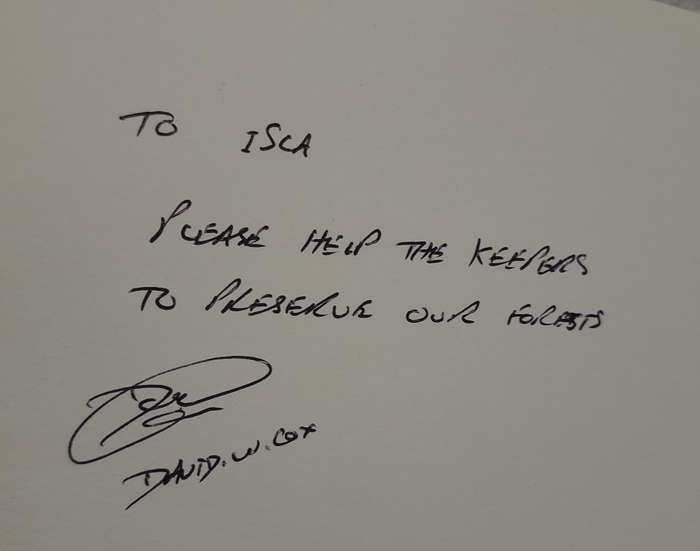 TO ISCA
PLEASE HELP THE KEEPERS
TO PRESERVE OUR FORESTS
DAVID.W.COX